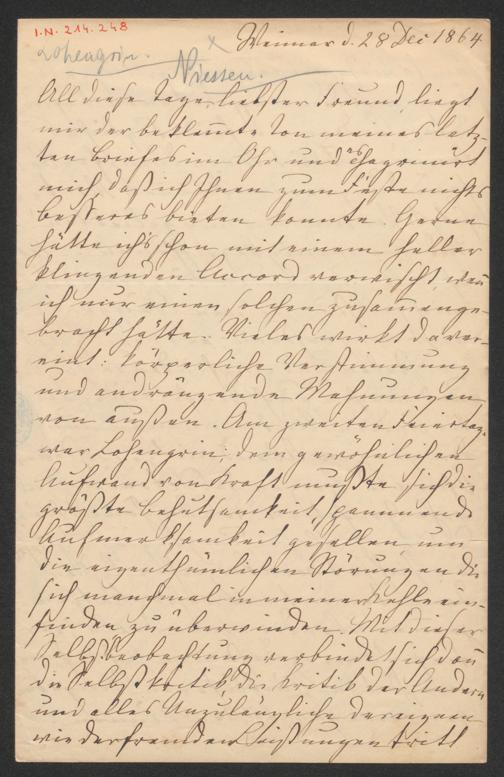 I.N. 214.248
Weimar d. 28 Dec 1864
Lohengrin.
x
Niessen.
All diese Tage, liebster Freund, liegt
mir der beklemte Ton meines letz-
ten Briefes im Ohr und es chagrinirt
mich, daß ich Ihnen zum Feste nichts
besseres bieten konnte. Gerne
hätte ich's schon mit einem heller
klingenden Accord verwischt, wen
ich nur einen solchen zusammenge-
bracht hätte. Vieles wirkt da ver-
eint: körperliche Verstimmung
und andrängende Mahnungen
von außen. Am zweiten Feiertag
war Lohengrin; dem gewöhnlichen
Aufwand von Kraft mußte sich die
größte Behutsamkeit, spannende
Aufmerksamkeit gesellen, um
die eigenthümlichen Störungen die
sich manchmal in meiner Kehle ein-
finden zu überwinden. Mit dieser
Selbstbeobachtung verbindet sich dan
die Selbstkritik, die Kritik der Andern
und alles Unzulängliche der eignen
wie der fremden Leistungen tritt